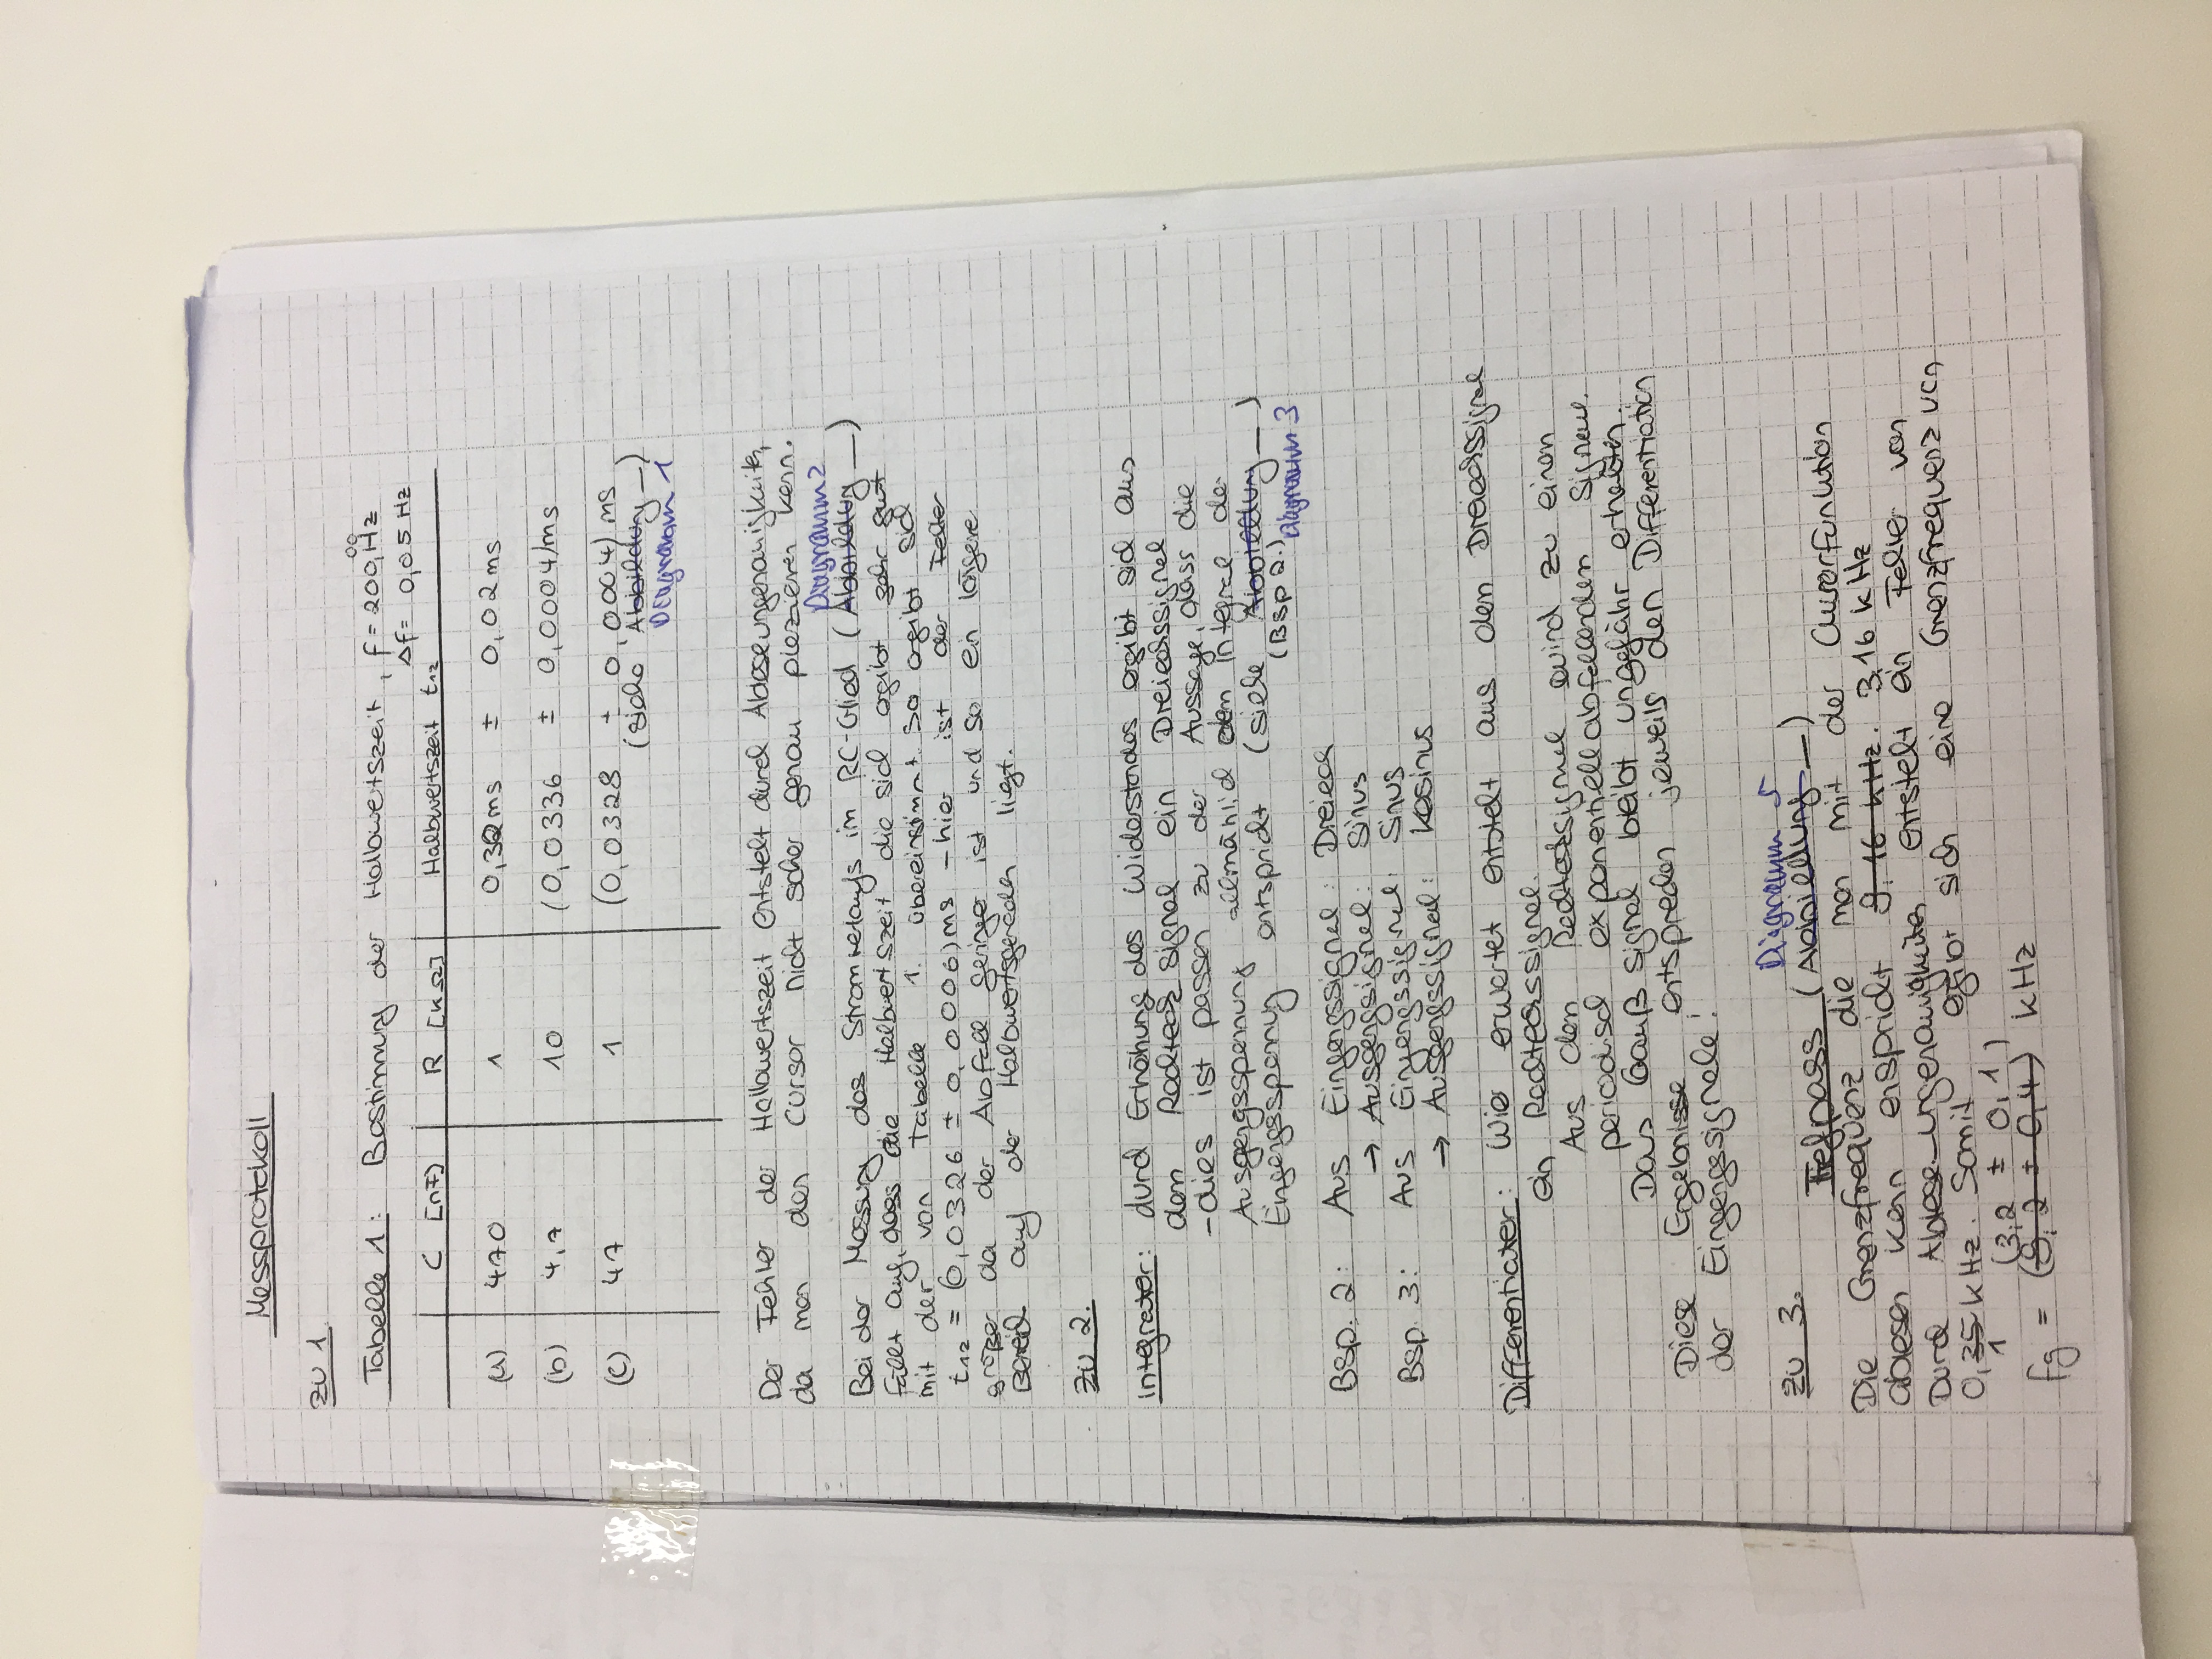 Messprotokoll
zu 1.
Tabelle 1: Bestimmung der Halbwertszeit, f = 200,00 Hz
Δf = 0,05 Hz
C [nF] R [kΩ] Halbwertszeit t12
(a) 470 1 0,32ms ± 0,02ms
(b) 4,7 10 (0,0336 ± 0,0004)ms
(c) 47 1 (0,0328 ± 0,0004) ms
(siehe Abbildung _)
Diagramm 1
Der Fehler der Halbwertszeit entsteht durch Ableseungenauigkeiten,
da man den Cursor nicht sicher genau plazieren kann.
Diagramm 2
Bei der Messung des Stromverlaufs im RC-Glied (Abbildung _)
fällt auf, dass die Halbwertszeit die sich ergibt sehr gut
mit der von Tabelle 1. übereinstimmt. So ergibt sich
t12 = (0,0326 ± 0,0006)ms - hier ist der Fehler
größer da der Abfall geringer ist und so ein längerer
Bereich auf der Halbwertsgeraden liegt.
zu 2.
Integrator: durch Erhöhung des Widerstandes ergibt sich aus
dem Rechtecksignal ein Dreieckssignal
- dies ist passen zu der Aussage, dass die
Ausgangsspannung allmählich dem Integral der
Eingangsspannung entspricht (siehe Abbildung _)
(Bsp 2.) Diagramm 3
Bsp. 2: Aus Eingangssignal: Dreieck
→ Ausgangsignal: Sinus
Bsp. 3: Aus Eingangssignal: Sinus
→ Ausgangssignal: Kosinus
Differentiator: Wie erwartet entsteht aus dem Dreieckssignal
ein Rechteckssignal.
Aus dem Rechtecksignal wird zu einem
periodisch exponentiell abfallenden Signal.
Das Gauß signal bleibt ungefähr erhalten.
Diese Ergebnisse entsprechen jeweils den Differentiation
der Eingangssignale!
zu 3.
Diagramm 5
Tiefpass (Abbildung _)
Die Grenzfrequenz die man mit der Cursorfunktion
ablesen kann enspricht 9,16 kHz. 3,16 kHz
Durch Ablese-ungenauigkeiten entsteht ein Fehler von
0,35 kHz. Somit ergibt sich eine Grenzfrequenz von
1 (3,2 ± 0,1)
fg = (9,2 ± 0,4) kHz